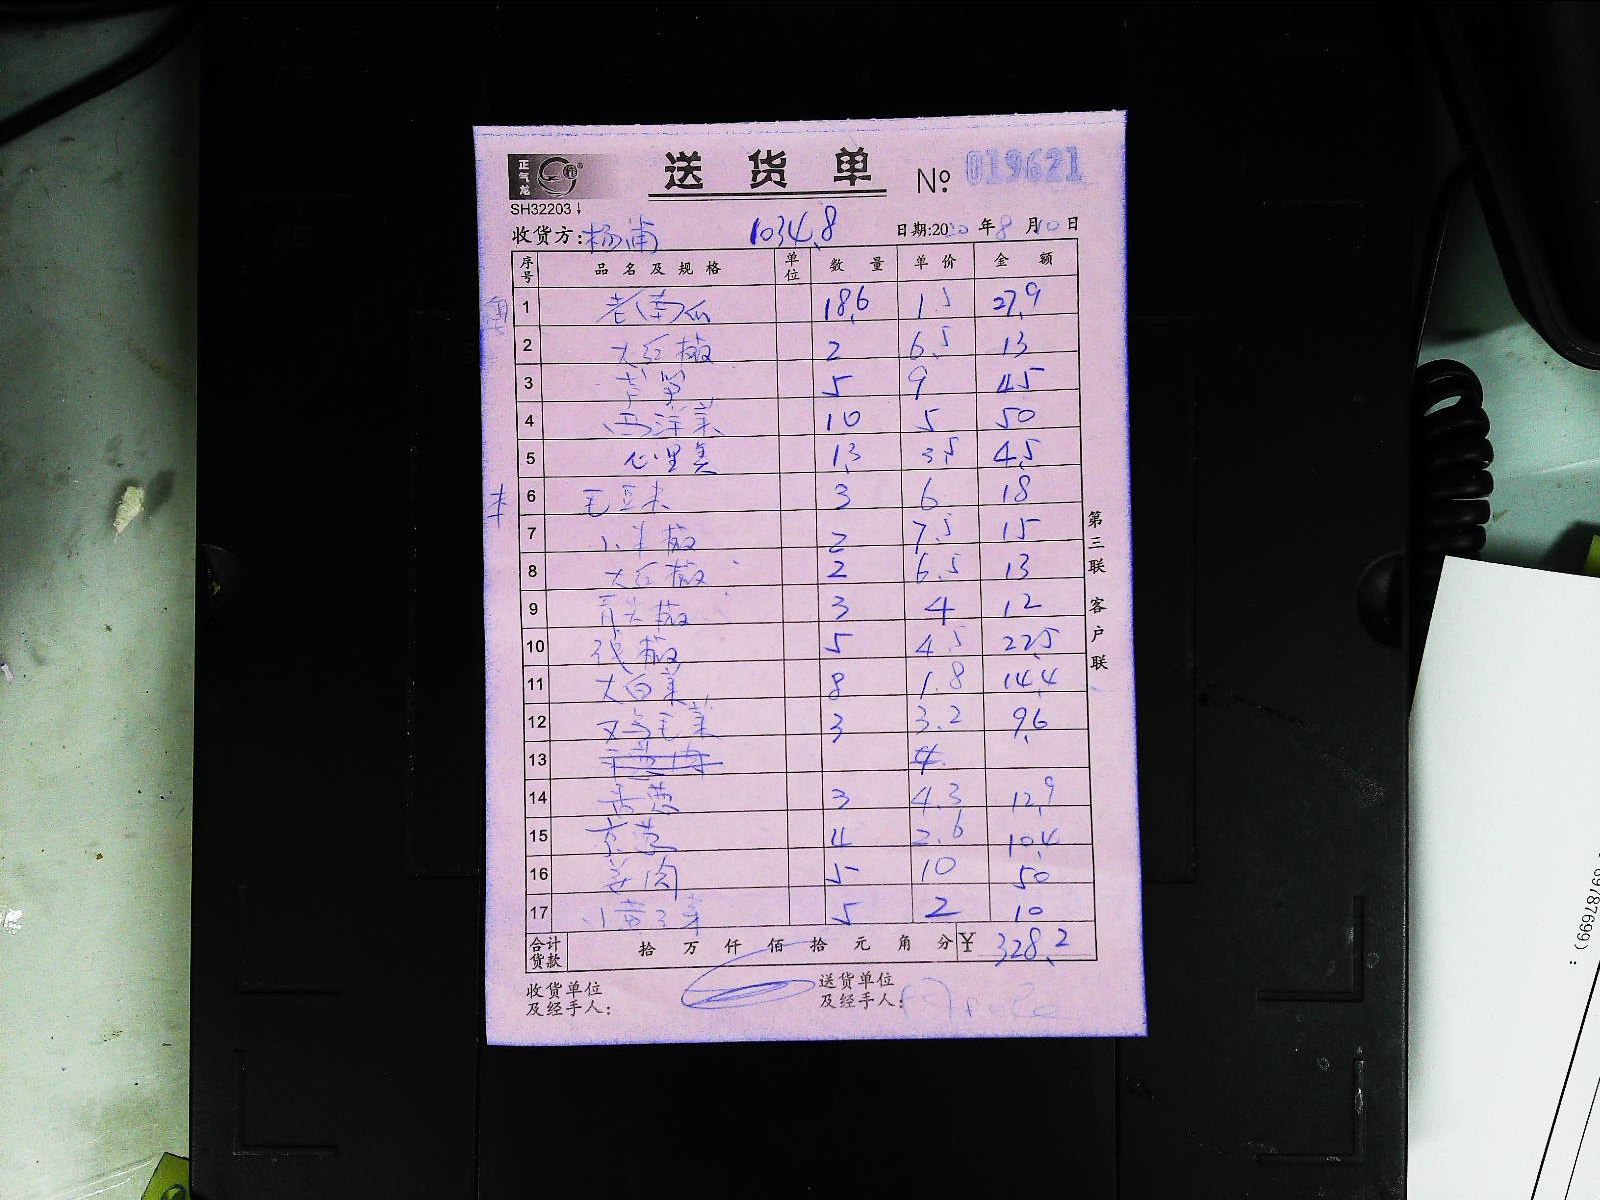 正气龙
送货单 № 019621
SH32203
收货方:杨浦 1034.8 日期:2020年8月10日
序号 品名及规格 单位 数量 单价 金额
1 老南瓜 18.6 1.5 27.9
2 大红椒 2 6.5 13
3 芦笋 5 9 45
4 西洋菜 10 5 50
5 心里美 1.3 3.5 4.5
6 毛豆米 3 6 18
7 小米椒 2 7.5 15
8 大红椒 2 6.5 13
9 青尖椒 3 4 12
10 线椒 5 4.5 22.5
11 大白菜 8 1.8 14.4
12 鸡毛菜 3 3.2 9.6
13 4.
14 香葱 3 4.3 12.9
15 京葱 4 2.6 10.4
16 姜肉 5 10 50
17 小黄豆芽 5 2 10
合计货款 拾万仟佰拾元角分 ¥ 328.2
收货单位及经手人:
送货单位及经手人:
第三联 客户联
69787699):